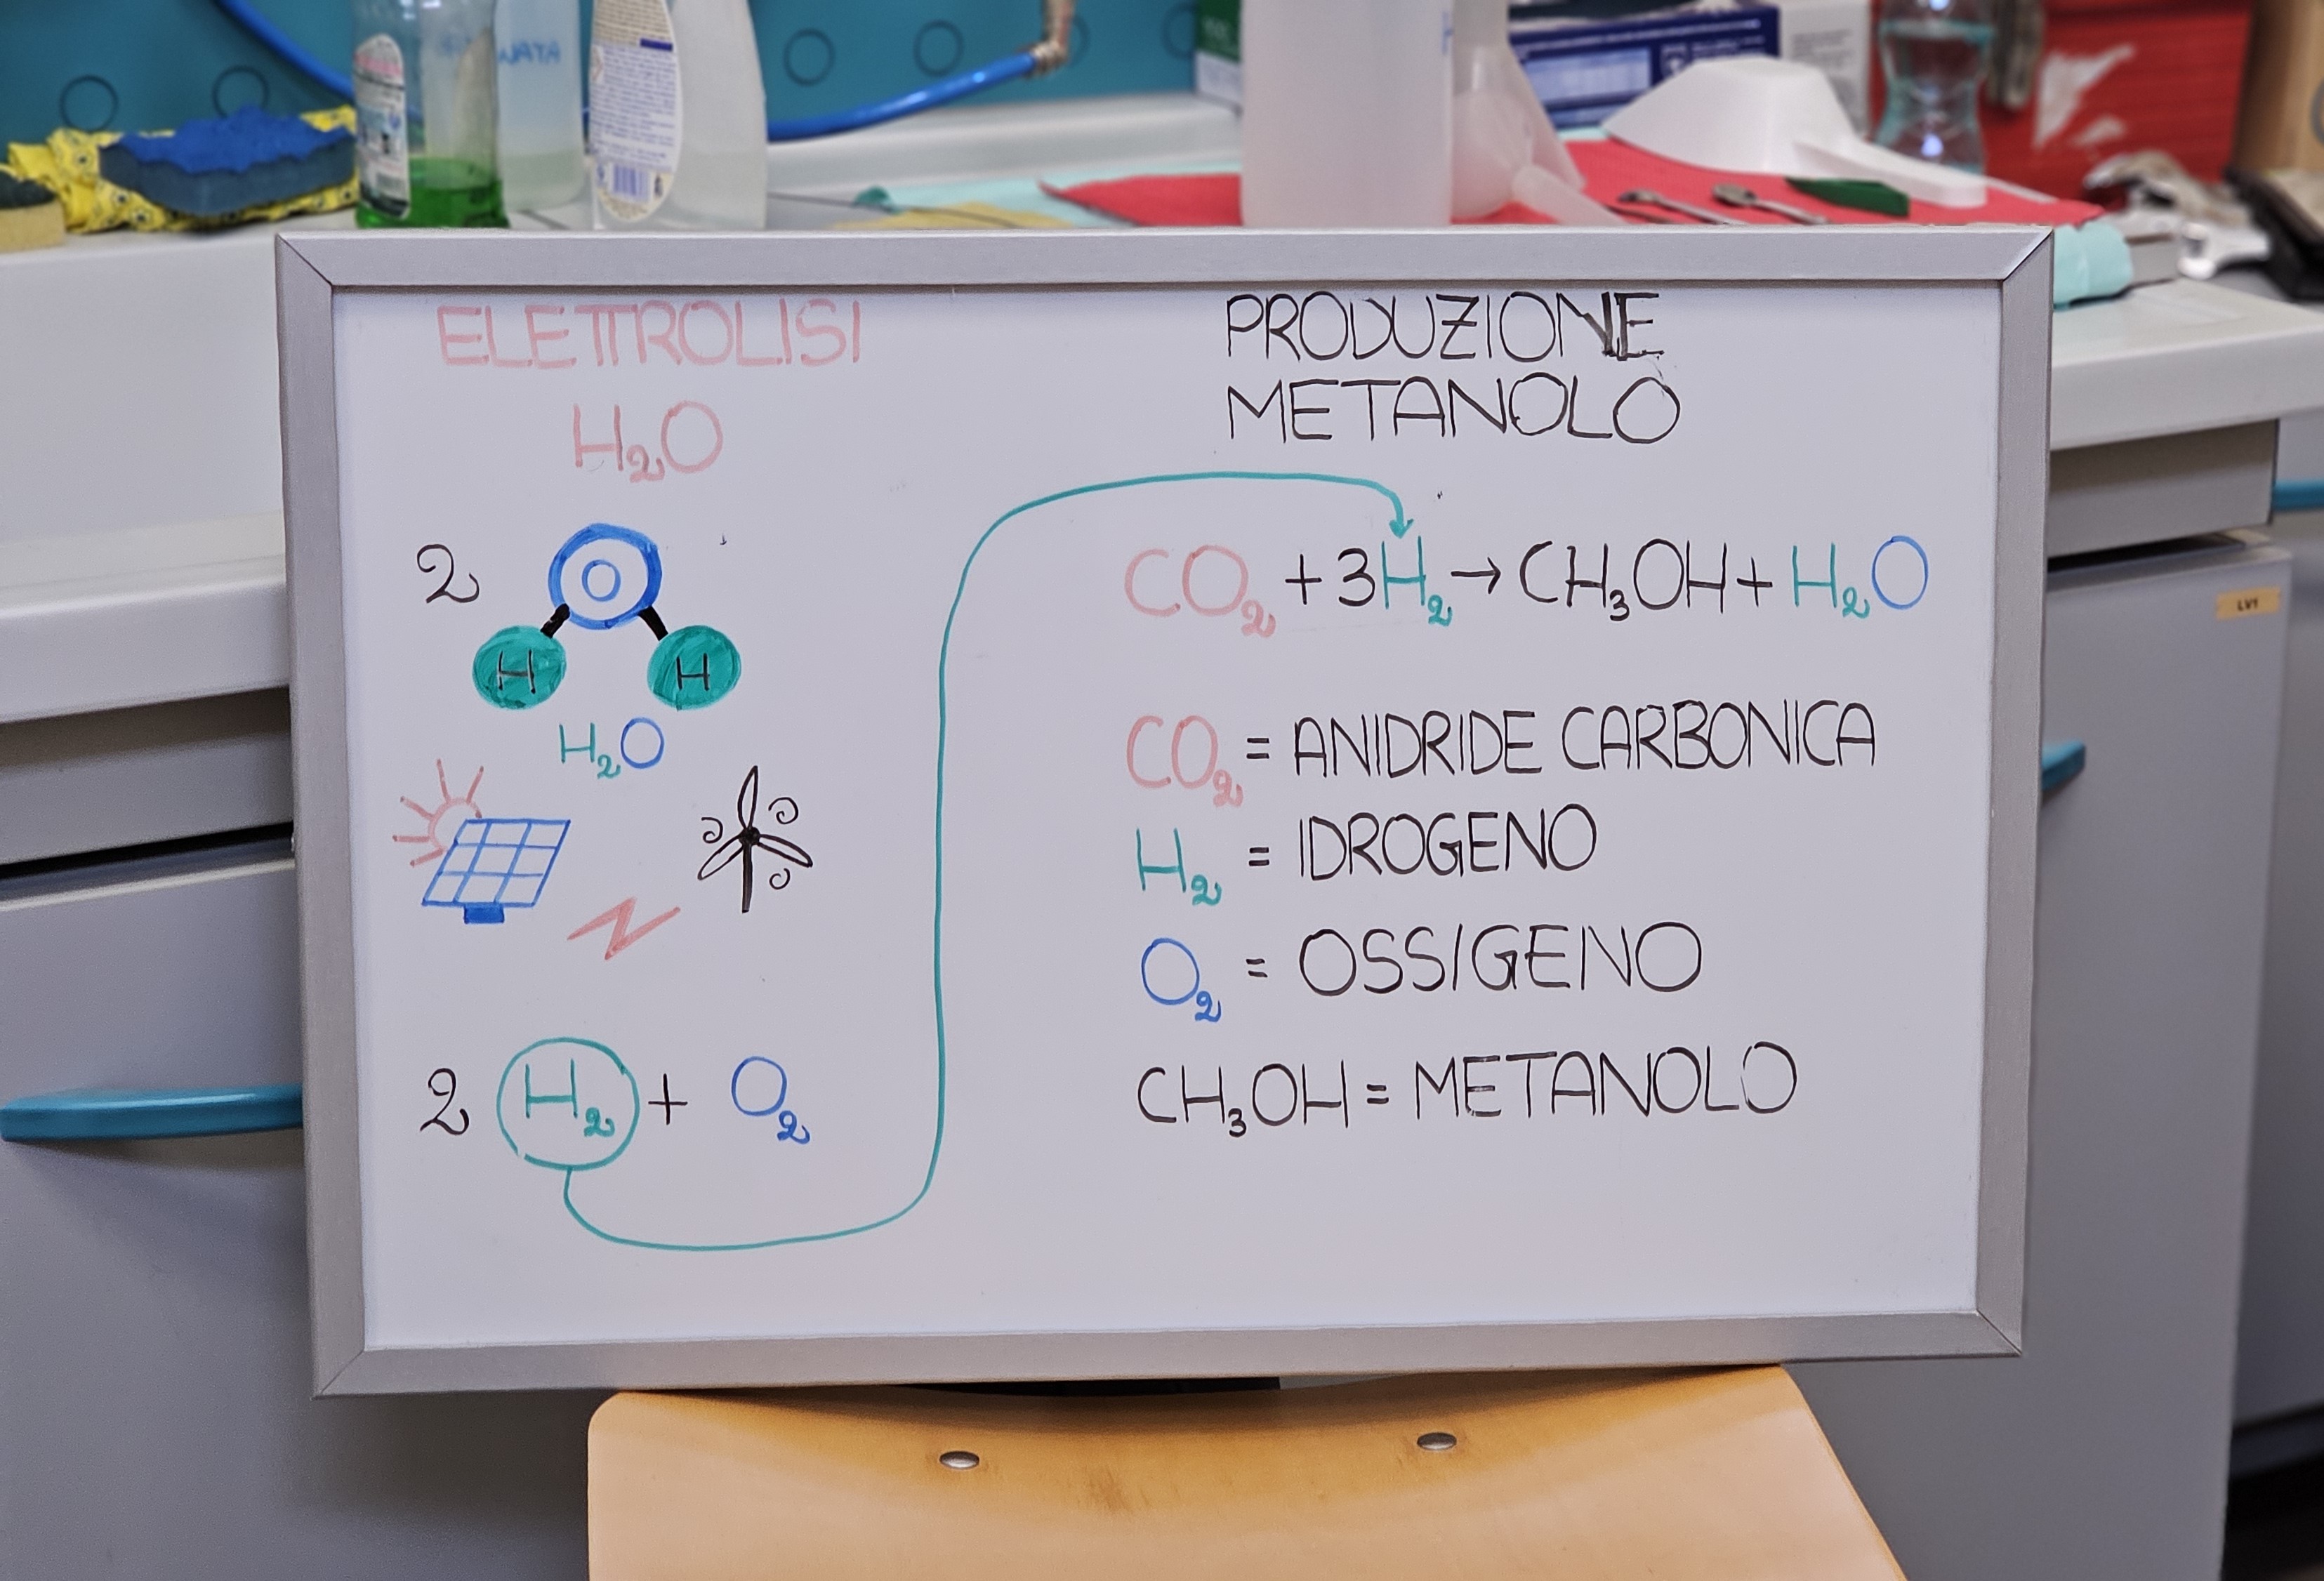 ELETTROLISI
H₂O
2 O
H H
H₂O
2 H₂ + O₂
PRODUZIONE
METANOLO
CO₂ + 3H₂ → CH₃OH + H₂O
CO₂ = ANIDRIDE CARBONICA
H₂ = IDROGENO
O₂ = OSSIGENO
CH₃OH = METANOLO
LV1